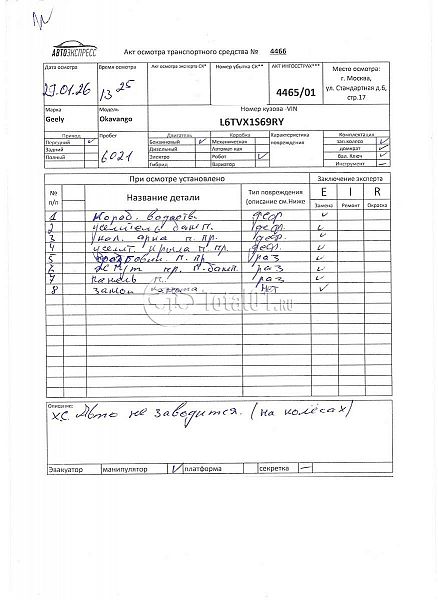 АВТОЭКСПРЕСС
Акт осмотра транспортного средства № 4466
Дата осмотра
Время осмотра
Акт осмотра эксперта СК*
Номер убытка СК**
АКТ ИНГОССТРАХ***
Место осмотра:
г. Москва,
ул. Стандартная д.6,
стр.17
13 25
4465/01
Марка
Geely
Модель
Okavango
Номер кузова -VIN
L6TVX1S69RY
Привод
Передний
Задний
Полный
Пробег
6021
Двигатель
Бензиновый
Дизельный
Электро
Гибрид
Коробка
Механическая
Автоматическая
Робот
Вариатор
Характеристика
повреждений
Комплектация
зап.колесо
домкрат
Бал. Ключ
Инструмент
№
п/п
При осмотре установлено
Название детали
Тип повреждения
(описание см.Ниже
Заключение эксперта
E I R
Замена Ремонт Окраска
1 Короб. деф
2 усилитель п. деф.
3 арка п. пр. деф.
4 усилит. крыла п. пр. деф.
5 п. пр. раз
6 пр. п. раз
7 п. раз
8 замок нет
Total01.ru
Описание:
Авто не заводится. (на колёсах)
Эвакуатор манипулятор платформа секретка